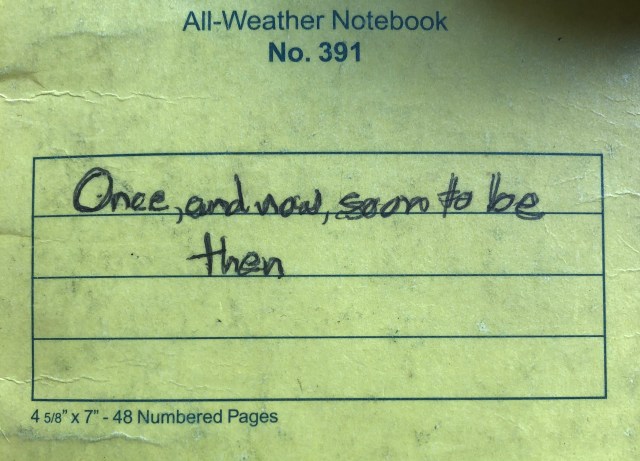 All-Weather Notebook
No. 391
Once, and now, soon to be
then
4 5/8" x 7" - 48 Numbered Pages